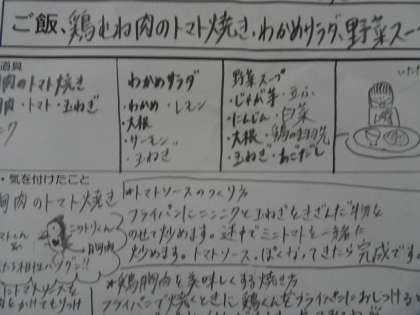 ご飯、鶏むね肉のトマト焼き・わかめサラダ、野菜スー
道具
肉のトマト焼き
肉・トマト・玉ねぎ
ニク
わかめサラダ
・わかめ・レモン
・大根
・サーモン
・玉ねぎ
野菜スープ
・じゃが芋・豆ふ
・にんじん・白菜
・大根・鶏の
・玉ねぎ・あごだし
・気を付けたこと
胸肉のトマト焼き
ニワトリくん
胸肉
相性バツグン!!
にトマトソースを
*トマトソースのつくり方
フライパンにニンニクと玉ねぎをきざんだ物を
のせて炒めます。途中でミニトマトを一緒に
炒めます。トマトソースっぽくなってきたら完成です。
*鶏胸肉を美味しくする焼き方
フライパンで焼くときに鶏くんをフライパンにおしつける